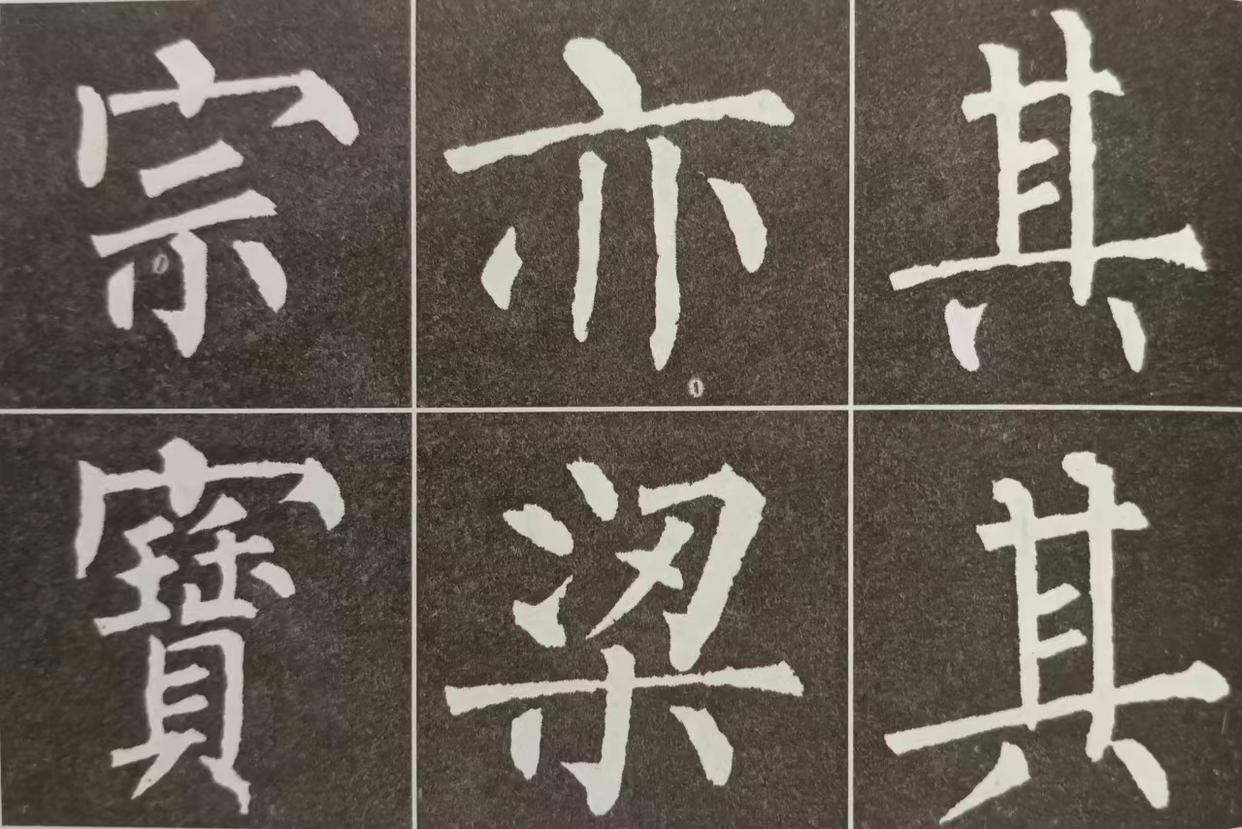 其其
亦梁
宗寶